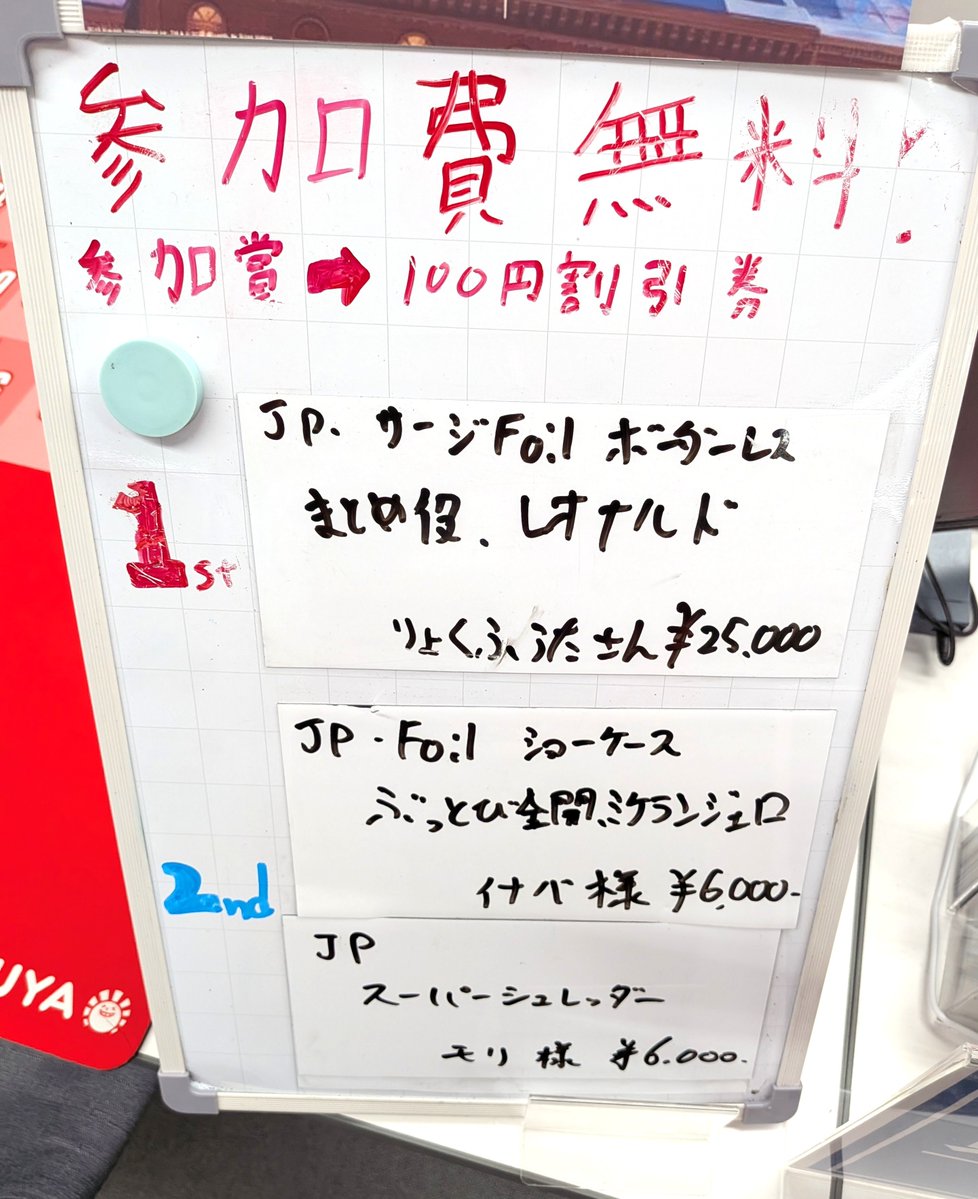 参加費無料!
参加賞➡100円割引券
1st
JP. サージFoil ボーダーレス
まとめ役、レオナルド
りょくふうた さん ¥25,000
2nd
JP・Foil ショーケース
ぶっとび全開、ミケランジェロ
イナバ 様 ¥6,000-
JP
スーパーシュレッダー
モリ 様 ¥6.000.
UYA